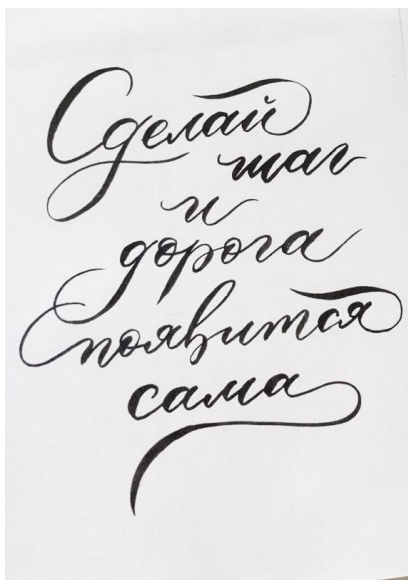 Сделай
шаг
и
дорога
появится
сама